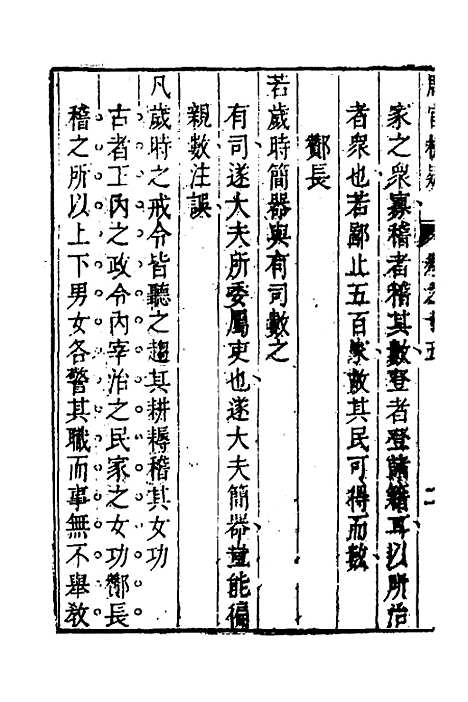 家之衆寡稽者稽其數登者登諸籍耳以所治
者衆也若鄙止五百家數其民可得而數
酇長
若歲時簡器與有司數之
有司遂大夫所委屬吏也遂大夫簡器豈能徧
親數注誤
凡歲時之戒令皆聽之趨其耕耨稽其女功
古者王內之政令內宰治之民家之女功酇長
稽之所以上下男女各警其職而事無不舉敎